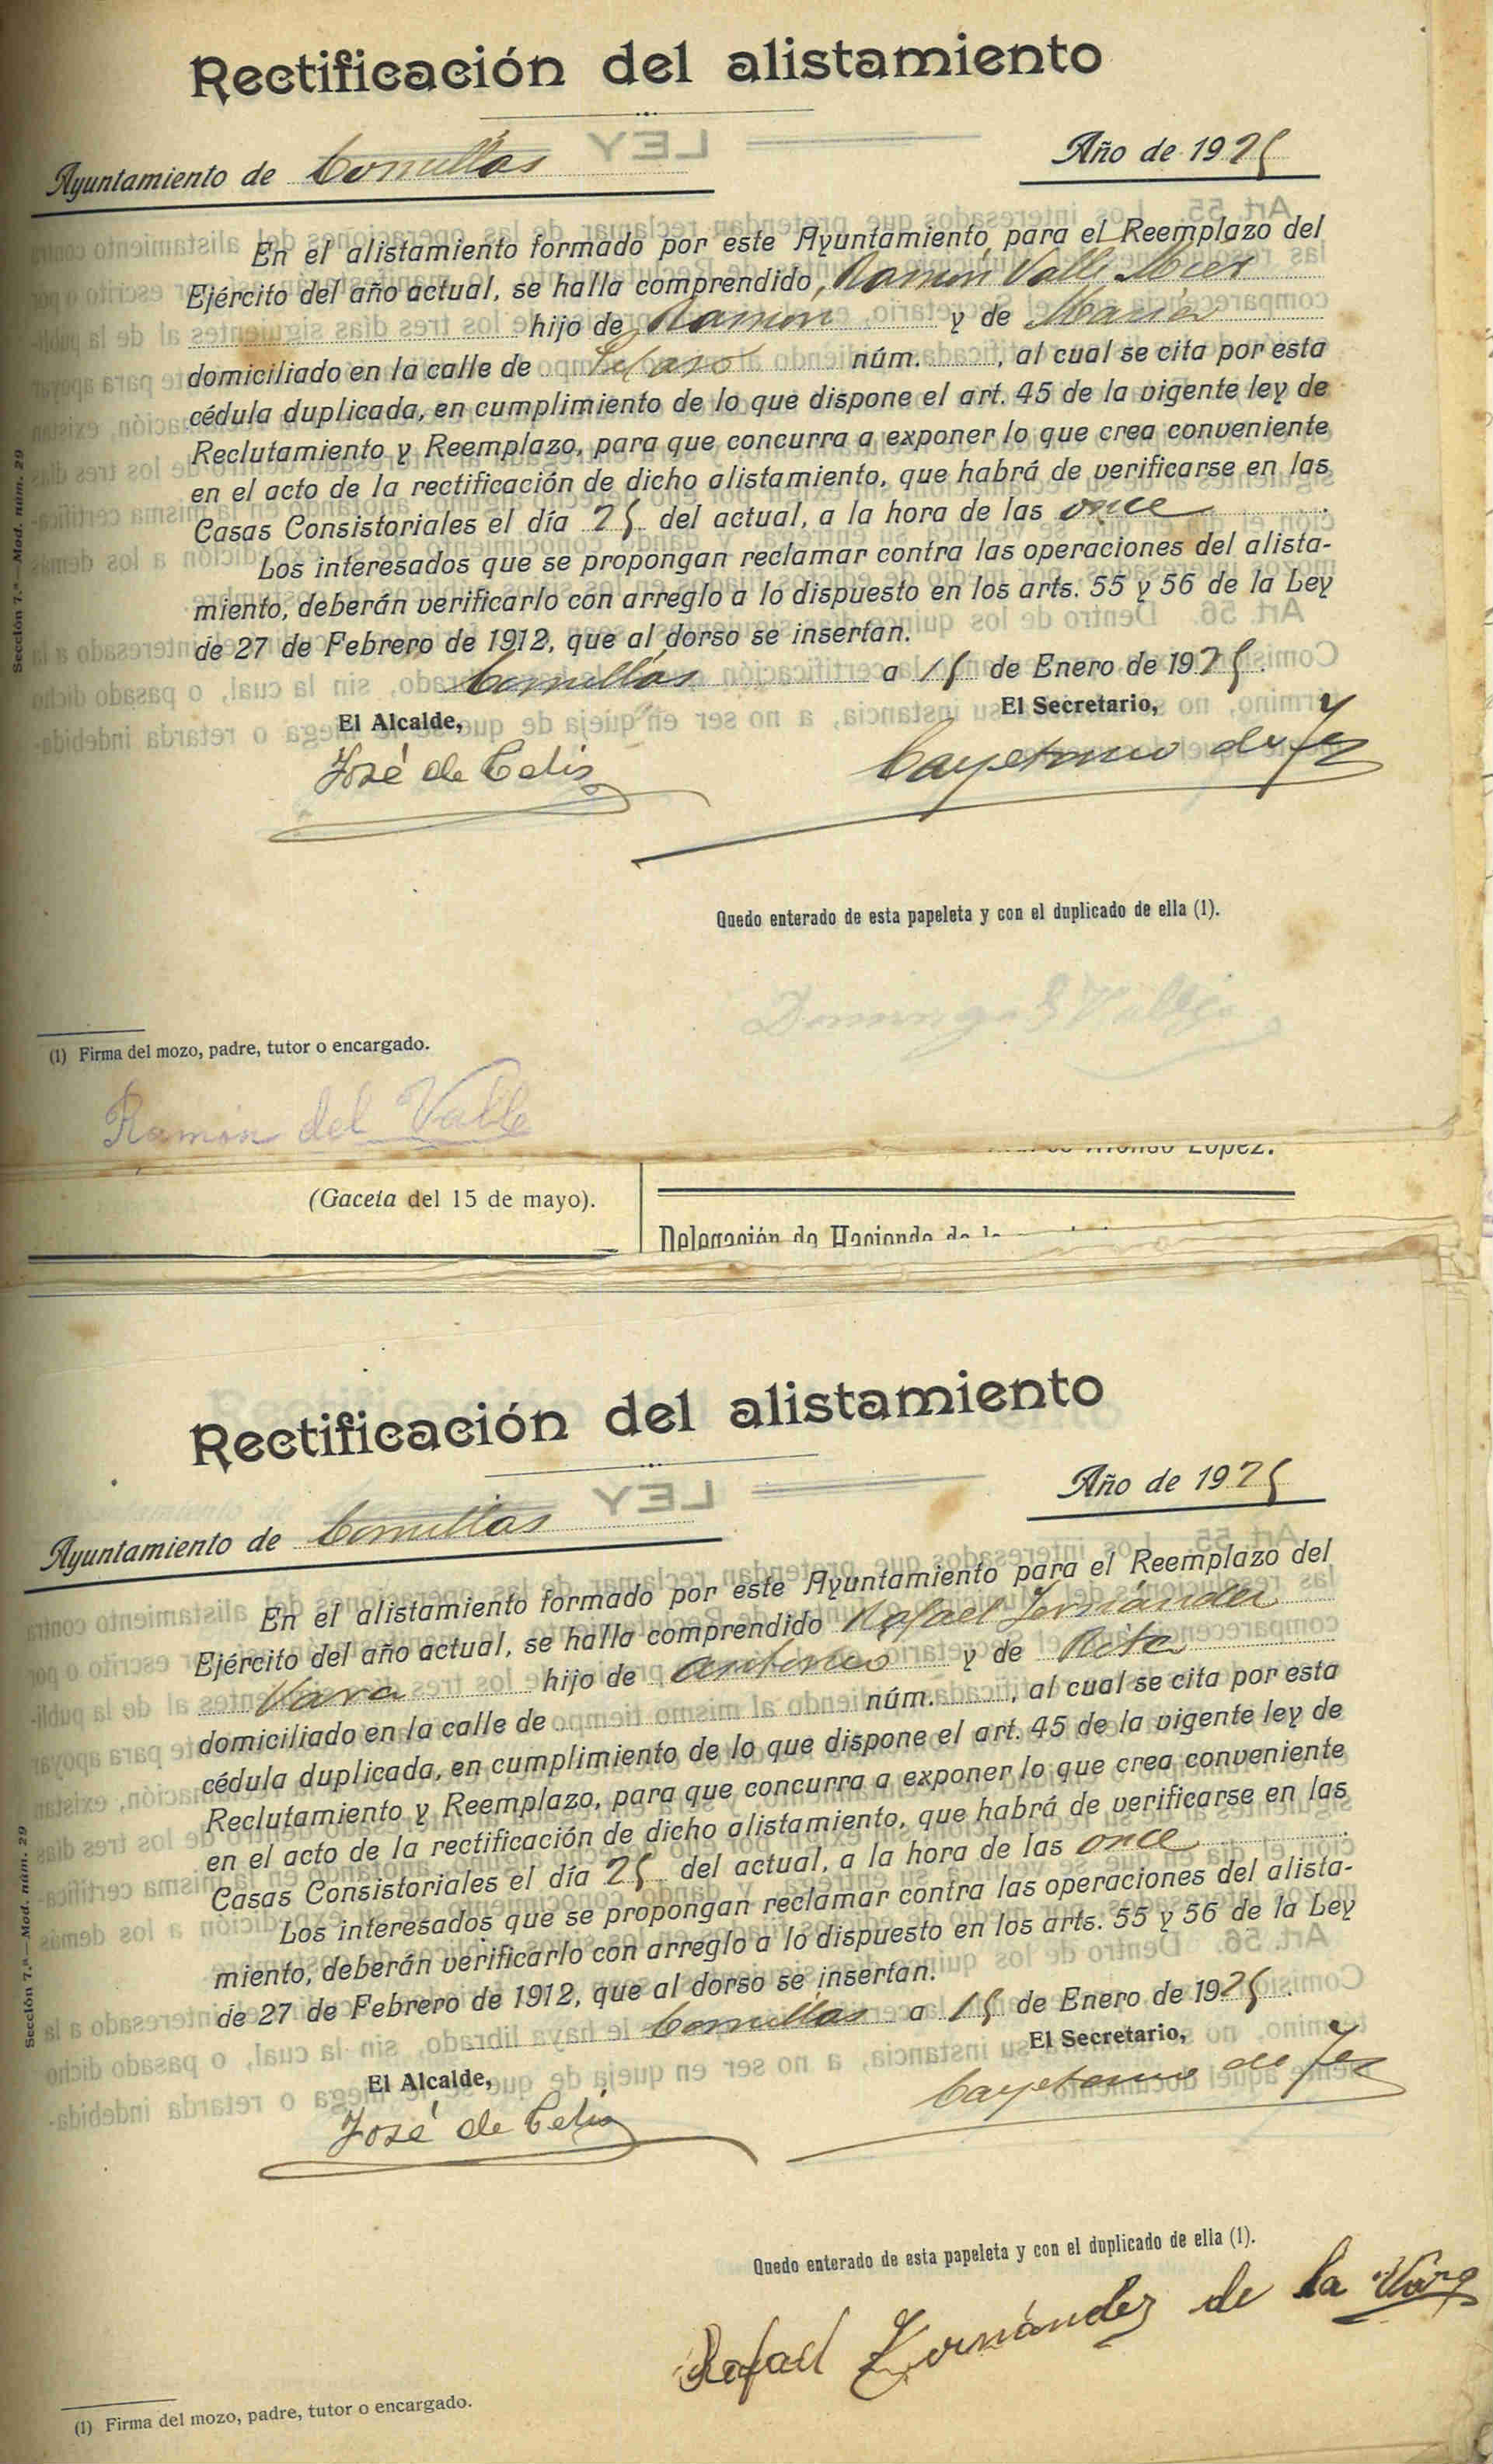 Rectificación del alistamiento
LEY
Ayuntamiento de Comillas
Año de 1925
En el alistamiento formado por este Ayuntamiento para el Reemplazo del
Ejército del año actual, se halla comprendido, Ramón Valle Mier
hijo de Ramón y de María
domiciliado en la calle de núm. , al cual se cita por esta
cédula duplicada, en cumplimiento de lo que dispone el art. 45 de la vigente ley de
Reclutamiento y Reemplazo, para que concurra a exponer lo que crea conveniente
en el acto de la rectificación de dicho alistamiento, que habrá de verificarse en las
Casas Consistoriales el día 25 del actual, a la hora de las once
Los interesados que se propongan reclamar contra las operaciones del alista-
miento, deberán verificarlo con arreglo a lo dispuesto en los arts. 55 y 56 de la Ley
de 27 de Febrero de 1912, que al dorso se insertan.
Comillas a 15 de Enero de 1925.
El Alcalde,
El Secretario,
José de Celis
Cayetano de
Sección 7.ª—Mod. núm. 29
Quedo enterado de esta papeleta y con el duplicado de ella (1).
(1) Firma del mozo, padre, tutor o encargado.
Ramón del Valle
López.
(Gaceta del 15 de mayo).
Delegación de Hacienda de la
Rectificación del alistamiento
LEY
Ayuntamiento de Comillas
Año de 1925
En el alistamiento formado por este Ayuntamiento para el Reemplazo del
Ejército del año actual, se halla comprendido Rafael Fernández
Vara hijo de Antonio y de Rita
domiciliado en la calle de núm. , al cual se cita por esta
cédula duplicada, en cumplimiento de lo que dispone el art. 45 de la vigente ley de
Reclutamiento y Reemplazo, para que concurra a exponer lo que crea conveniente
en el acto de la rectificación de dicho alistamiento, que habrá de verificarse en las
Casas Consistoriales el día 25 del actual, a la hora de las once
Los interesados que se propongan reclamar contra las operaciones del alista-
miento, deberán verificarlo con arreglo a lo dispuesto en los arts. 55 y 56 de la Ley
de 27 de Febrero de 1912, que al dorso se insertan.
Comillas a 15 de Enero de 1925.
El Alcalde,
El Secretario,
José de Celis
Cayetano de
Sección 7.ª—Mod. núm. 29
Quedo enterado de esta papeleta y con el duplicado de ella (1).
Rafael Fernández de la Vara
(1) Firma del mozo, padre, tutor o encargado.